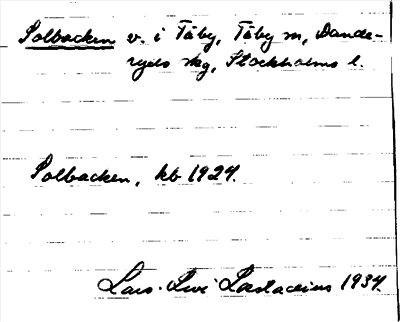 Solbacken v. i Täby, Täby sn, Dande-
ryds skg, Stockholms l.
Solbacken, kb 1927.
Lars-Levi Læstadius 1937.